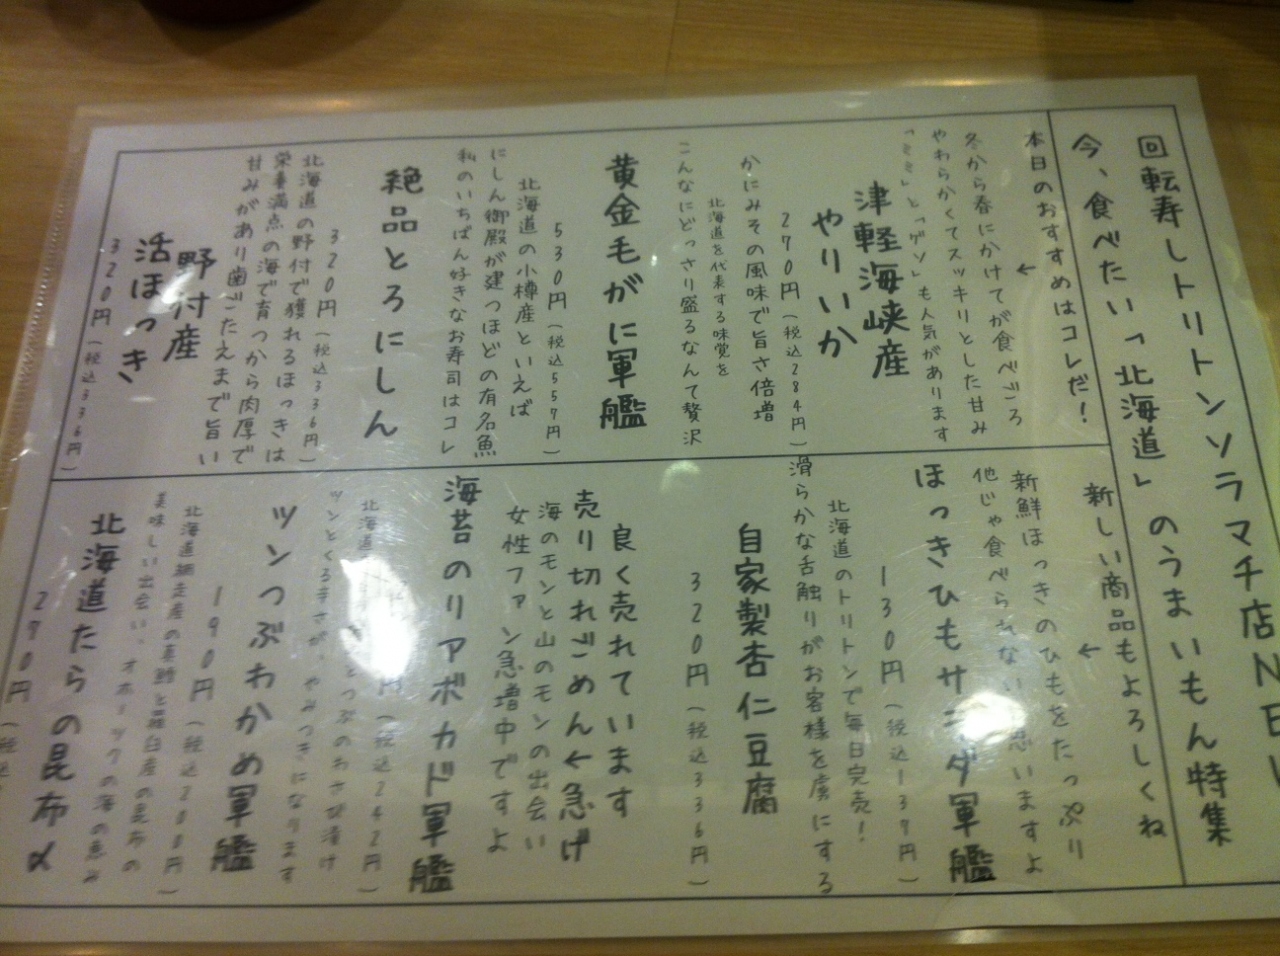 回転寿しトリトンソラマチ店NEW
今、食べたい「北海道」のうまいもん特集
本日のおすすめはコレだ！
←
冬から春にかけてが食べごろ
やわらかくてスッキリとした甘み
「ミミ」と「ゲソ」も人気があります
津軽海峡産
やりいか
270円（税込284円）
かにみその風味で旨さ倍増
北海道を代表する味覚を
こんなにどっさり盛るなんて贅沢
黄金毛がに軍艦
530円（税込557円）
北海道の小樽産といえば
にしん御殿が建つほどの有名魚
私のいちばん好きなお寿司はコレ
絶品とろにしん
320円（税込336円）
北海道の野付で獲れるほっきは
栄養満点の海で育つから肉厚で
甘みがあり歯ごたえまで旨い
野付産
活ほっき
320円（税込336円）
新しい商品もよろしくね
←
新鮮ほっきのひもをたっぷり
他じゃ食べられない 思いますよ
ほっきひもサラダ軍艦
130円（税込137円）
北海道のトリトンで毎日完売！
滑らかな舌触りがお客様を虜にする
自家製杏仁豆腐
320円（税込336円）
良く売れています
売り切れごめん←急げ
海のモンと山のモンの出会い
女性ファン急増中ですよ
海苔のリアボカド軍艦
円（税込242円）
北海道
つぶのわさび漬け
ツンとくる辛さが、やみつきになります
ツンつぶわかめ軍艦
190円（税込200円）
北海道網走産の真鱈と羅臼産の昆布の
美味しい出会い、オホーツクの海の恵み
北海道たらの昆布〆
270円（税込